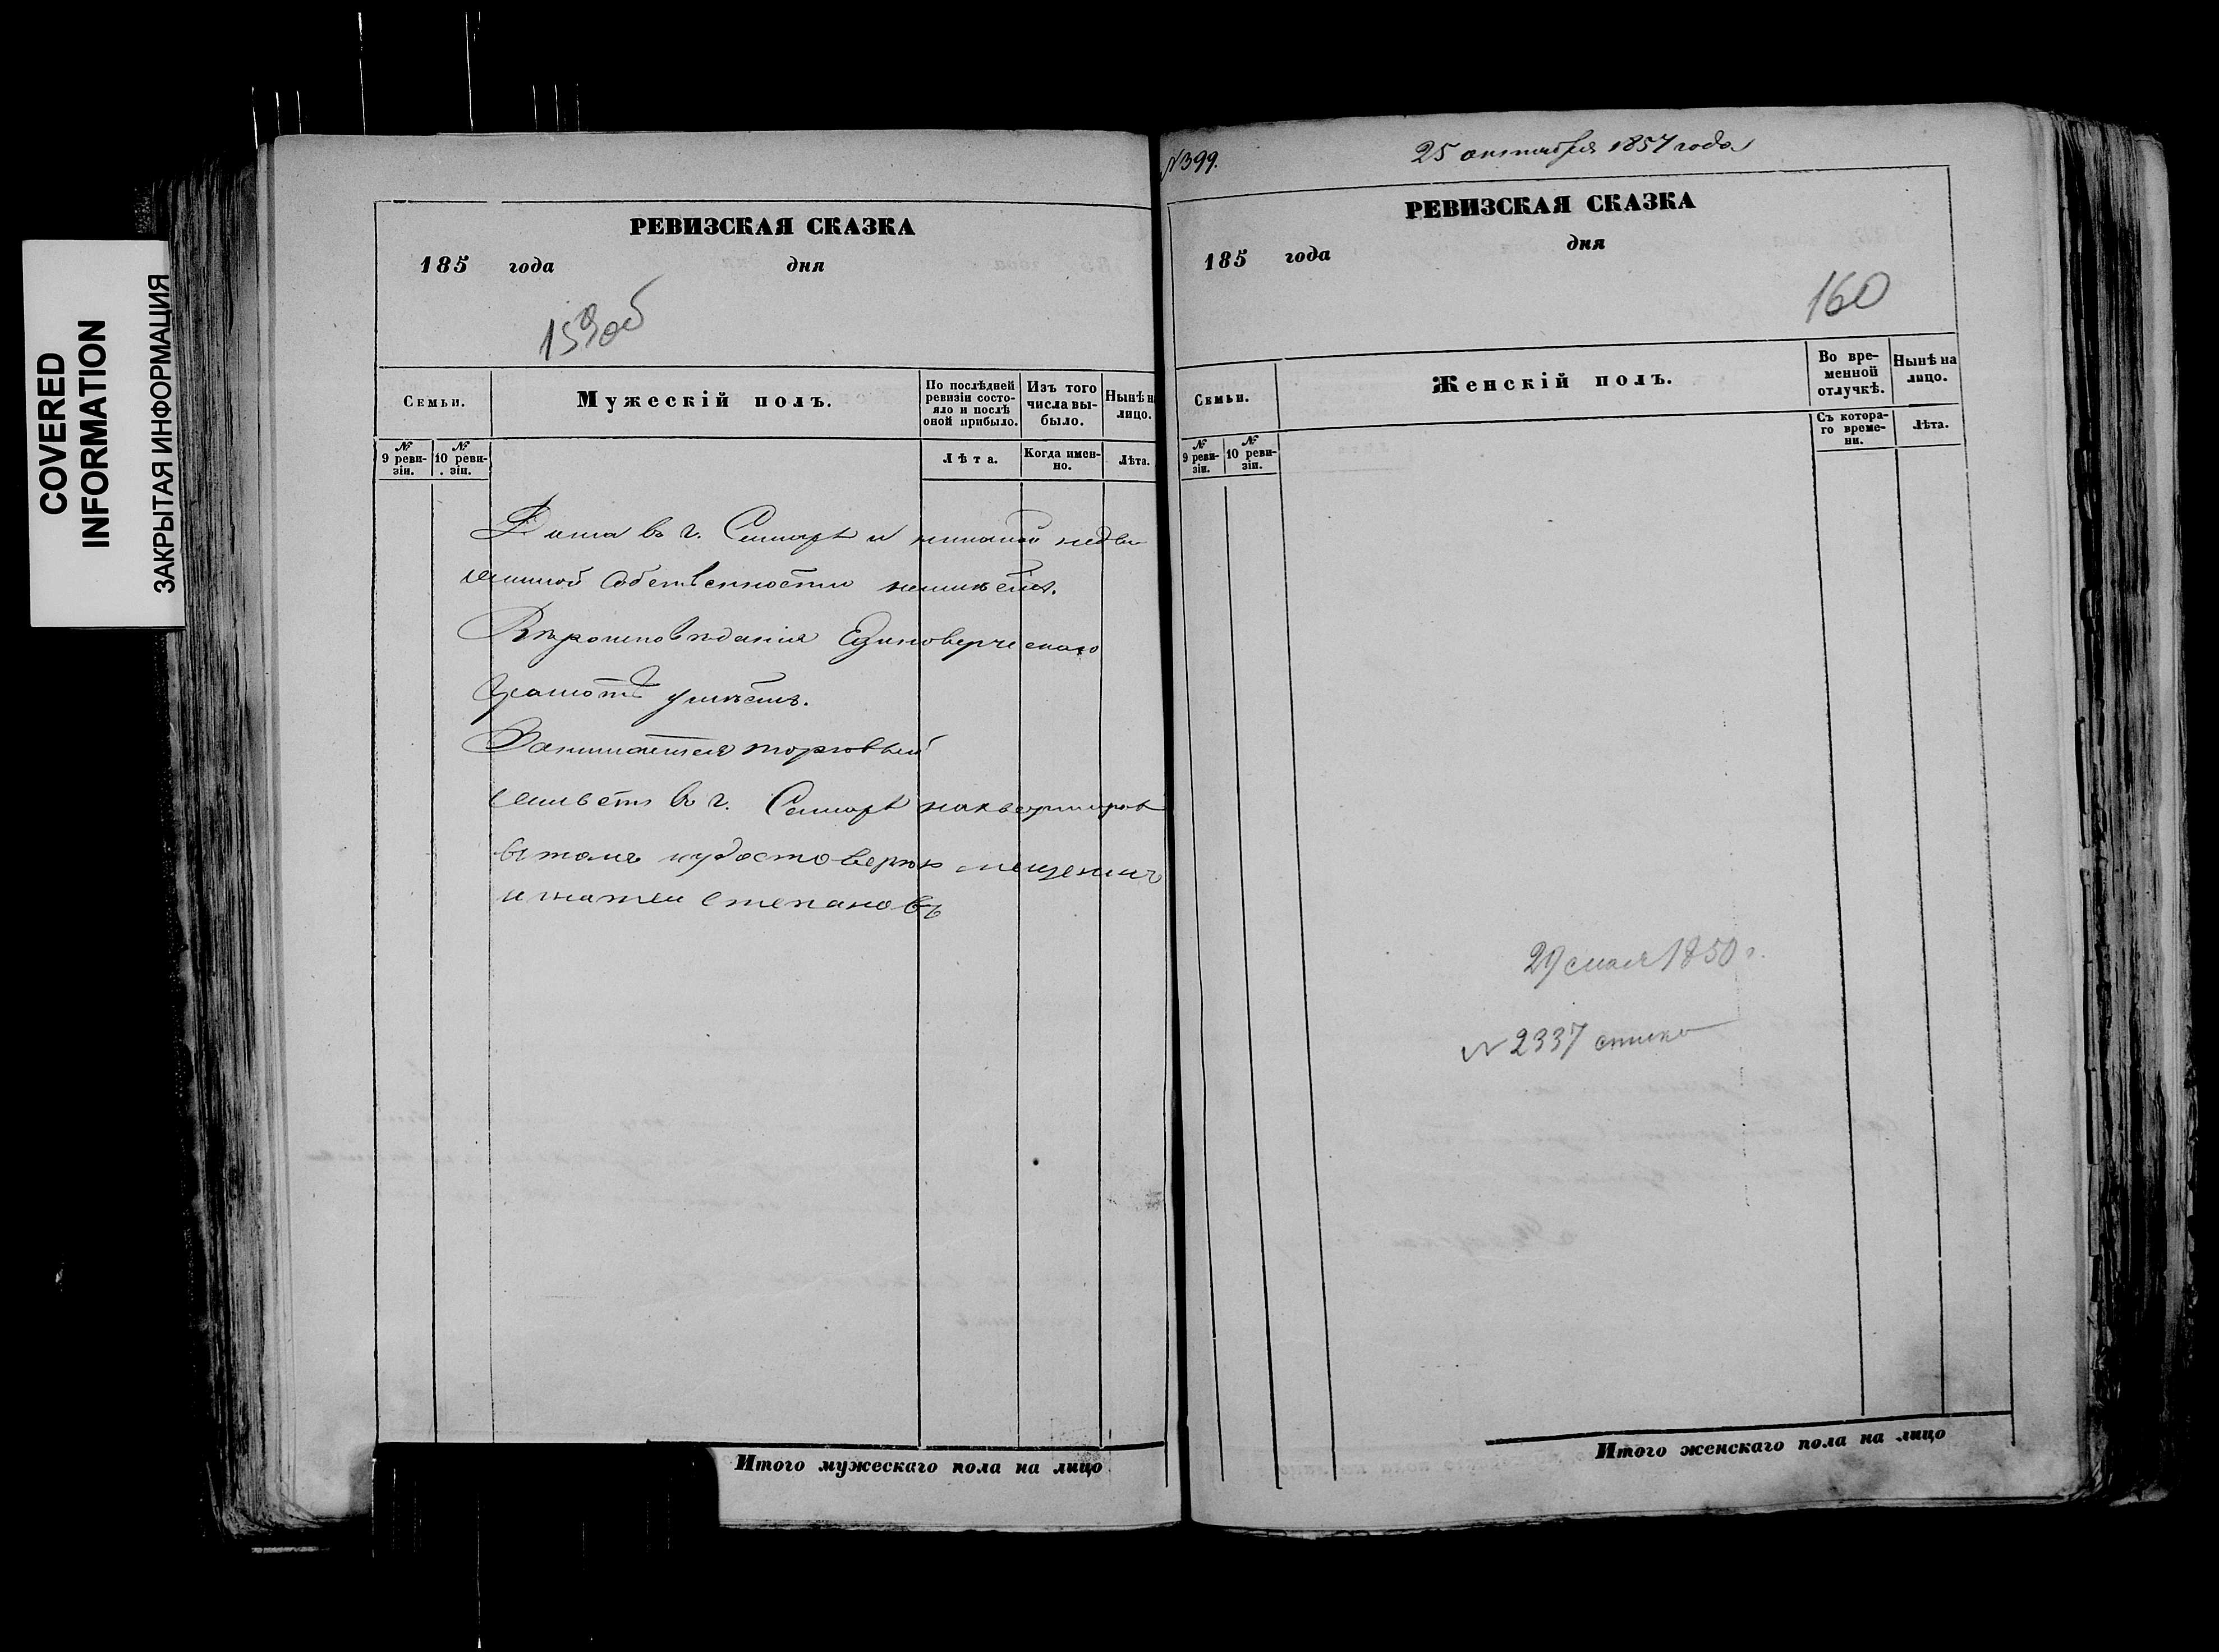 COVERED
INFORMATION
ЗАКРЫТАЯ ИНФОРМАЦИЯ
РЕВИЗСКАЯ СКАЗКА
185 года дня
159об
Семьи.
Мужескій полъ.
По послѣдней ревизіи состояло и послѣ оной прибыло.
Изъ того числа выбыло.
Нынѣ н лицо.
№ 9 ревизіи.
№ 10 ревизіи.
Лѣта.
Когда именно.
Лѣта.
Дома въ г. Самарѣ и никакой недви
жимой собственности неимѣетъ.
Вѣроисповѣданія Единоверческаго
Грамотѣ умѣетъ.
Занимается торговлей
живетъ въ г. Самарѣ наквартире
въ томъ иудостоверяю мещенинъ
игнатеи степановъ
Итого мужескаго пола на лицо
№399.
25 октября 1857 года
РЕВИЗСКАЯ СКАЗКА
185 года дня
160
Семьи.
Женскій полъ.
Во временной отлучкѣ.
Нынѣ на лицо.
№ 9 ревизіи.
№ 10 ревизіи.
Съ котораго времени.
Лѣта.
29 мая 1850 г.
№ 2337
Итого женскаго пола на лицо